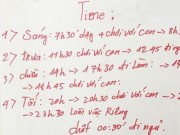 Time:
1) Sáng: 7h30 dạy + chơi với con → 8h
2) Trưa: 11h30 chơi với con → 12h15
3) chiều: 14h → 17h30 đi làm:
→ 19h45 chơi với con:
4) Tối: 20h → 20h30 chơi với con →
→ 23h30 Làm việc Riêng
chốt 00:30' đi ngủ.